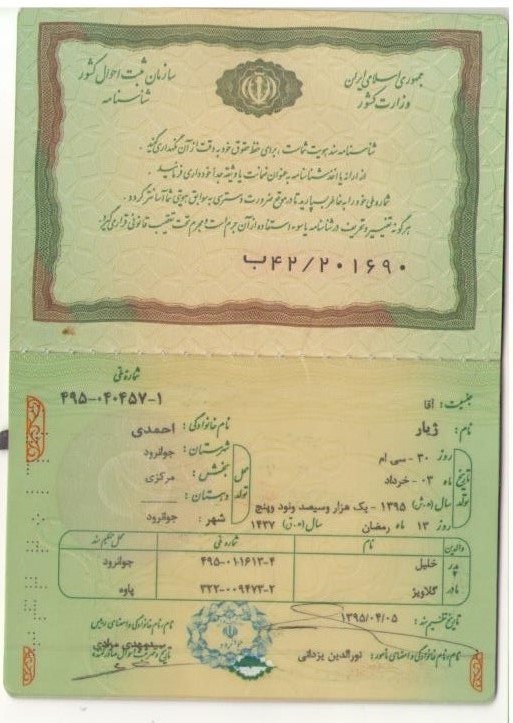 جمهوری اسلامی ایران
وزارت کشور
سازمان ثبت احوال کشور
شناسنامه
شناسنامه سند هویت شماست ، برای حفظ حقوق خود به دقت از آن نگهداری کنید .
از ارائه یا اخذ شناسنامه به عنوان ضمانت یا وثیقه جدا خودداری فرمائید .
شماره ملی خود را به خاطر بسپارید تا در موقع ضرورت دسترسی به سوابق هویتی شما آسانتر گردد .
هرگونه تغییر و تحریف در شناسنامه یا سوء استفاده از آن جرم است و مجرم تحت تعقیب قانونی قرار می گیرد.
ب۴۲/۲۰۱۶۹۰
شماره ملی
۴۹۵-۰۴۰۴۵۷-۱
جنسیت : آقا
نام : ژیار
نام خانوادگی : احمدی
تاریخ تولد
روز ۳۰ - سی ام
ماه ۰۳ - خرداد
سال (ه.ش) ۱۳۹۵ - یک هزار وسیصد ونود وپنج
روز ۱۳ ماه رمضان سال (ه.ق) ۱۴۳۷
محل تولد
شهرستان : جوانرود
بخش : مرکزی
دهستان :
شهر : جوانرود
والدین نام شماره ملی محل تنظیم سند
پدر خلیل ۴۹۵-۰۱۱۶۱۳-۴ جوانرود
مادر گلاویژ ۳۲۲-۰۰۹۴۷۳-۲ پاوه
تاریخ تنظیم سند : ۱۳۹۵/۰۴/۰۵
نام و نام خانوادگی و امضای مامور : نورالدین یزدانی
نام و نام خانوادگی و امضای رئیس
سیدمهدی مرادی